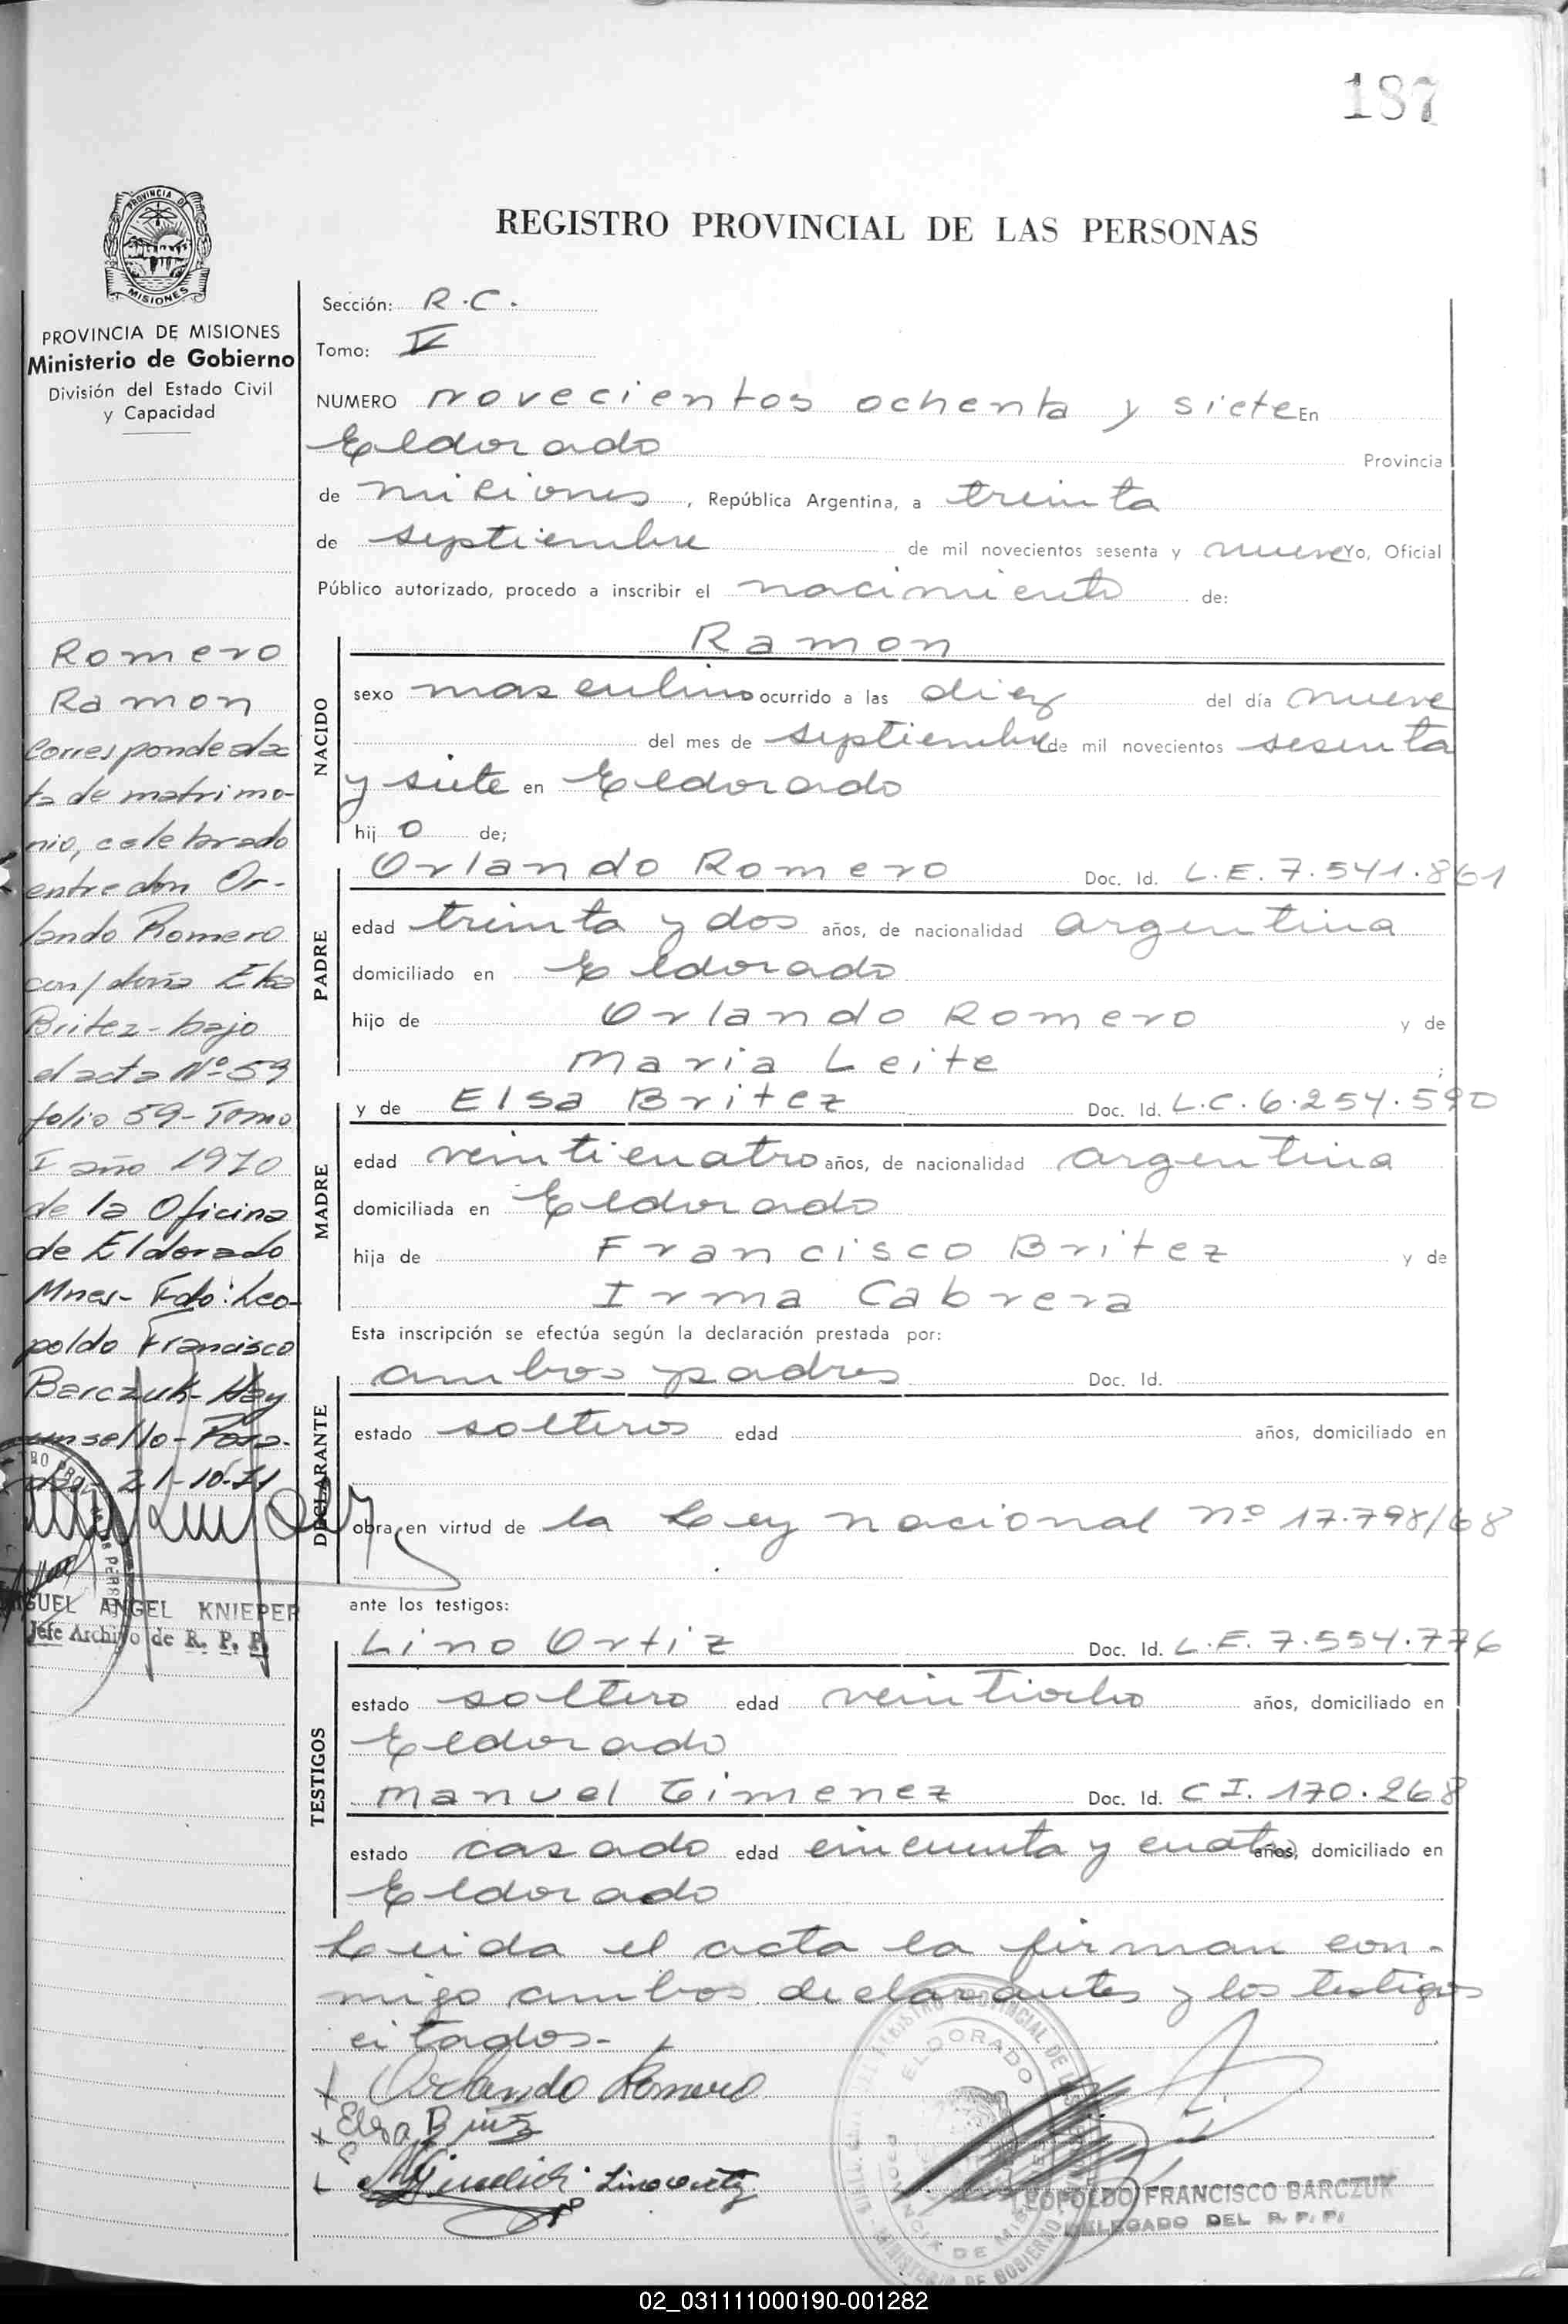 187
PROVINCIA DE
MISIONES
PROVINCIA DE MISIONES
Ministerio de Gobierno
División del Estado Civil
y Capacidad
REGISTRO PROVINCIAL DE LAS PERSONAS
Sección: R.C.
Tomo: V
NUMERO novecientos ochenta y siete En
Eldorado Provincia
de misiones, República Argentina, a treinta
de septiembre de mil novecientos sesenta y nueve Yo, Oficial
Público autorizado, procedo a inscribir el nacimiento de:
NACIDO
Ramon
sexo masculino ocurrido a las diez del día nueve
del mes de septiembre de mil novecientos sesenta
y siete en Eldorado
hijo de;
PADRE
Orlando Romero Doc. Id. L.E. 7.541.861
edad treinta y dos años, de nacionalidad argentina
domiciliado en Eldorado
hijo de Orlando Romero y de
Maria Leite ;
MADRE
y de Elsa Britez Doc. Id. L.C. 6.254.590
edad veinticuatro años, de nacionalidad argentina
domiciliada en Eldorado
hija de Francisco Britez y de
Irma Cabrera
Esta inscripción se efectúa según la declaración prestada por:
DECLARANTE
ambos padres Doc. Id.
estado solteros edad años, domiciliado en
obra en virtud de la Ley nacional nº 17.798/68
ante los testigos:
TESTIGOS
Lino Ortiz Doc. Id. L.E. 7.554.776
estado soltero edad veintiocho años, domiciliado en
Eldorado
Manuel Gimenez Doc. Id. C I. 170.268
estado casado edad cincuenta y cuatro años, domiciliado en
Eldorado
Leida el acta la firman con-
migo ambos declarantes y los testigos
citados-
Orlando Romero
Elsa Britez
Lino Ortiz
ELDORADO
LEOPOLDO FRANCISCO BARCZUK
DELEGADO DEL R. P. P.
Romero
Ramon
Corresponde al ac
ta de matrimo-
nio, celebrado
entre don Or-
lando Romero
con/doña Elsa
Britez - bajo
el acta Nº 59
folio 59- Tomo
I año 1970
de la Oficina
de Eldorado
Mnes- Fdo: Leo-
poldo Francisco
Barczuk- Hay
un sello- Posa-
das 21-10-71
MIGUEL ANGEL KNIEPER
Jefe Archivo de R. P. P.
02_031111000190-001282